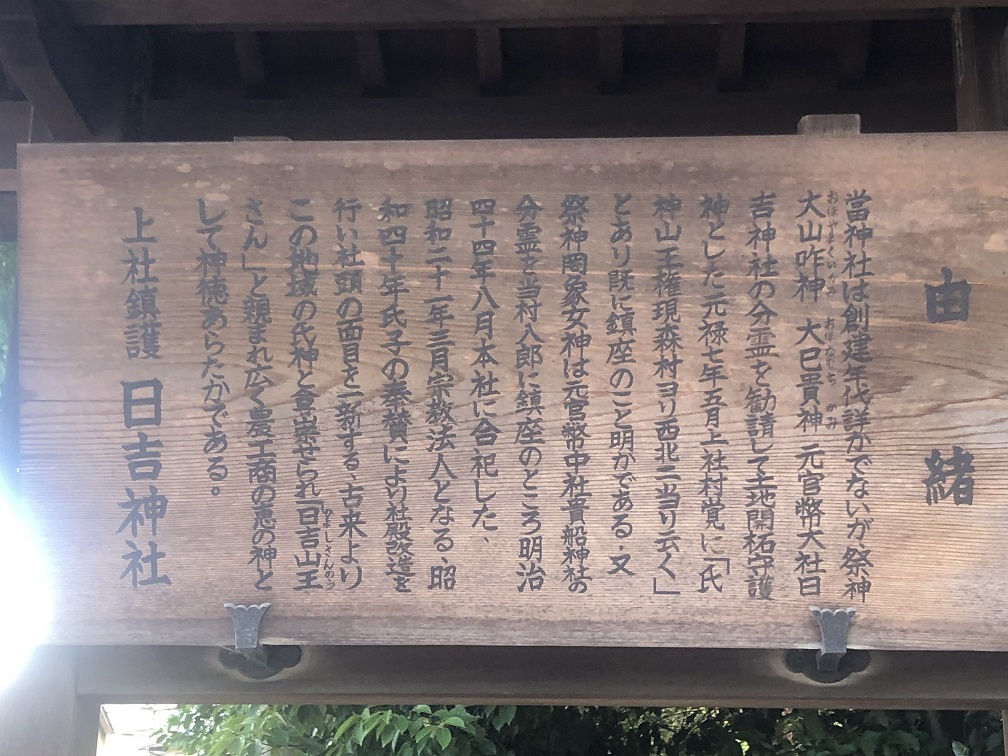 由緒
當神社は創建年代詳かでないが祭神
大山咋神 大己貴神 元官幣大社日
おほやまくいのかみ おほなむちのかみ
吉神社の分霊を勧請して土地開柘守護
神とした元禄七年五月上社村覚に「氏
神山王権現森村ヨリ西北ニ当リ云く」
とあり既に鎮座のこと明かである・又
祭神罔象女神は元官幣中社貴船神社の
分霊を当村八郎に鎮座のところ明治
四十四年八月本社に合祀した、
昭和二十一年三月宗教法人となる、昭
和四十年氏子の奉賛により社殿改造を
行い社頭の面目を一新する、古来より
この地域の氏神と尊崇せられ「日吉山王
ひよしさんのう
さん」と親まれ広く農工商の恵の神と
して神徳あらたかである。
上社鎮護 日吉神社